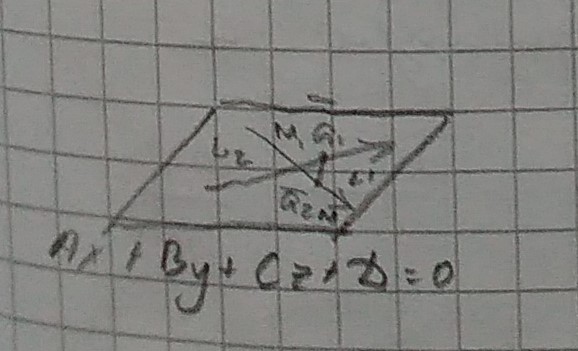 L₂ M₁ a̅₁
L₁
a̅₂ M
Ax + By + Cz + D = 0